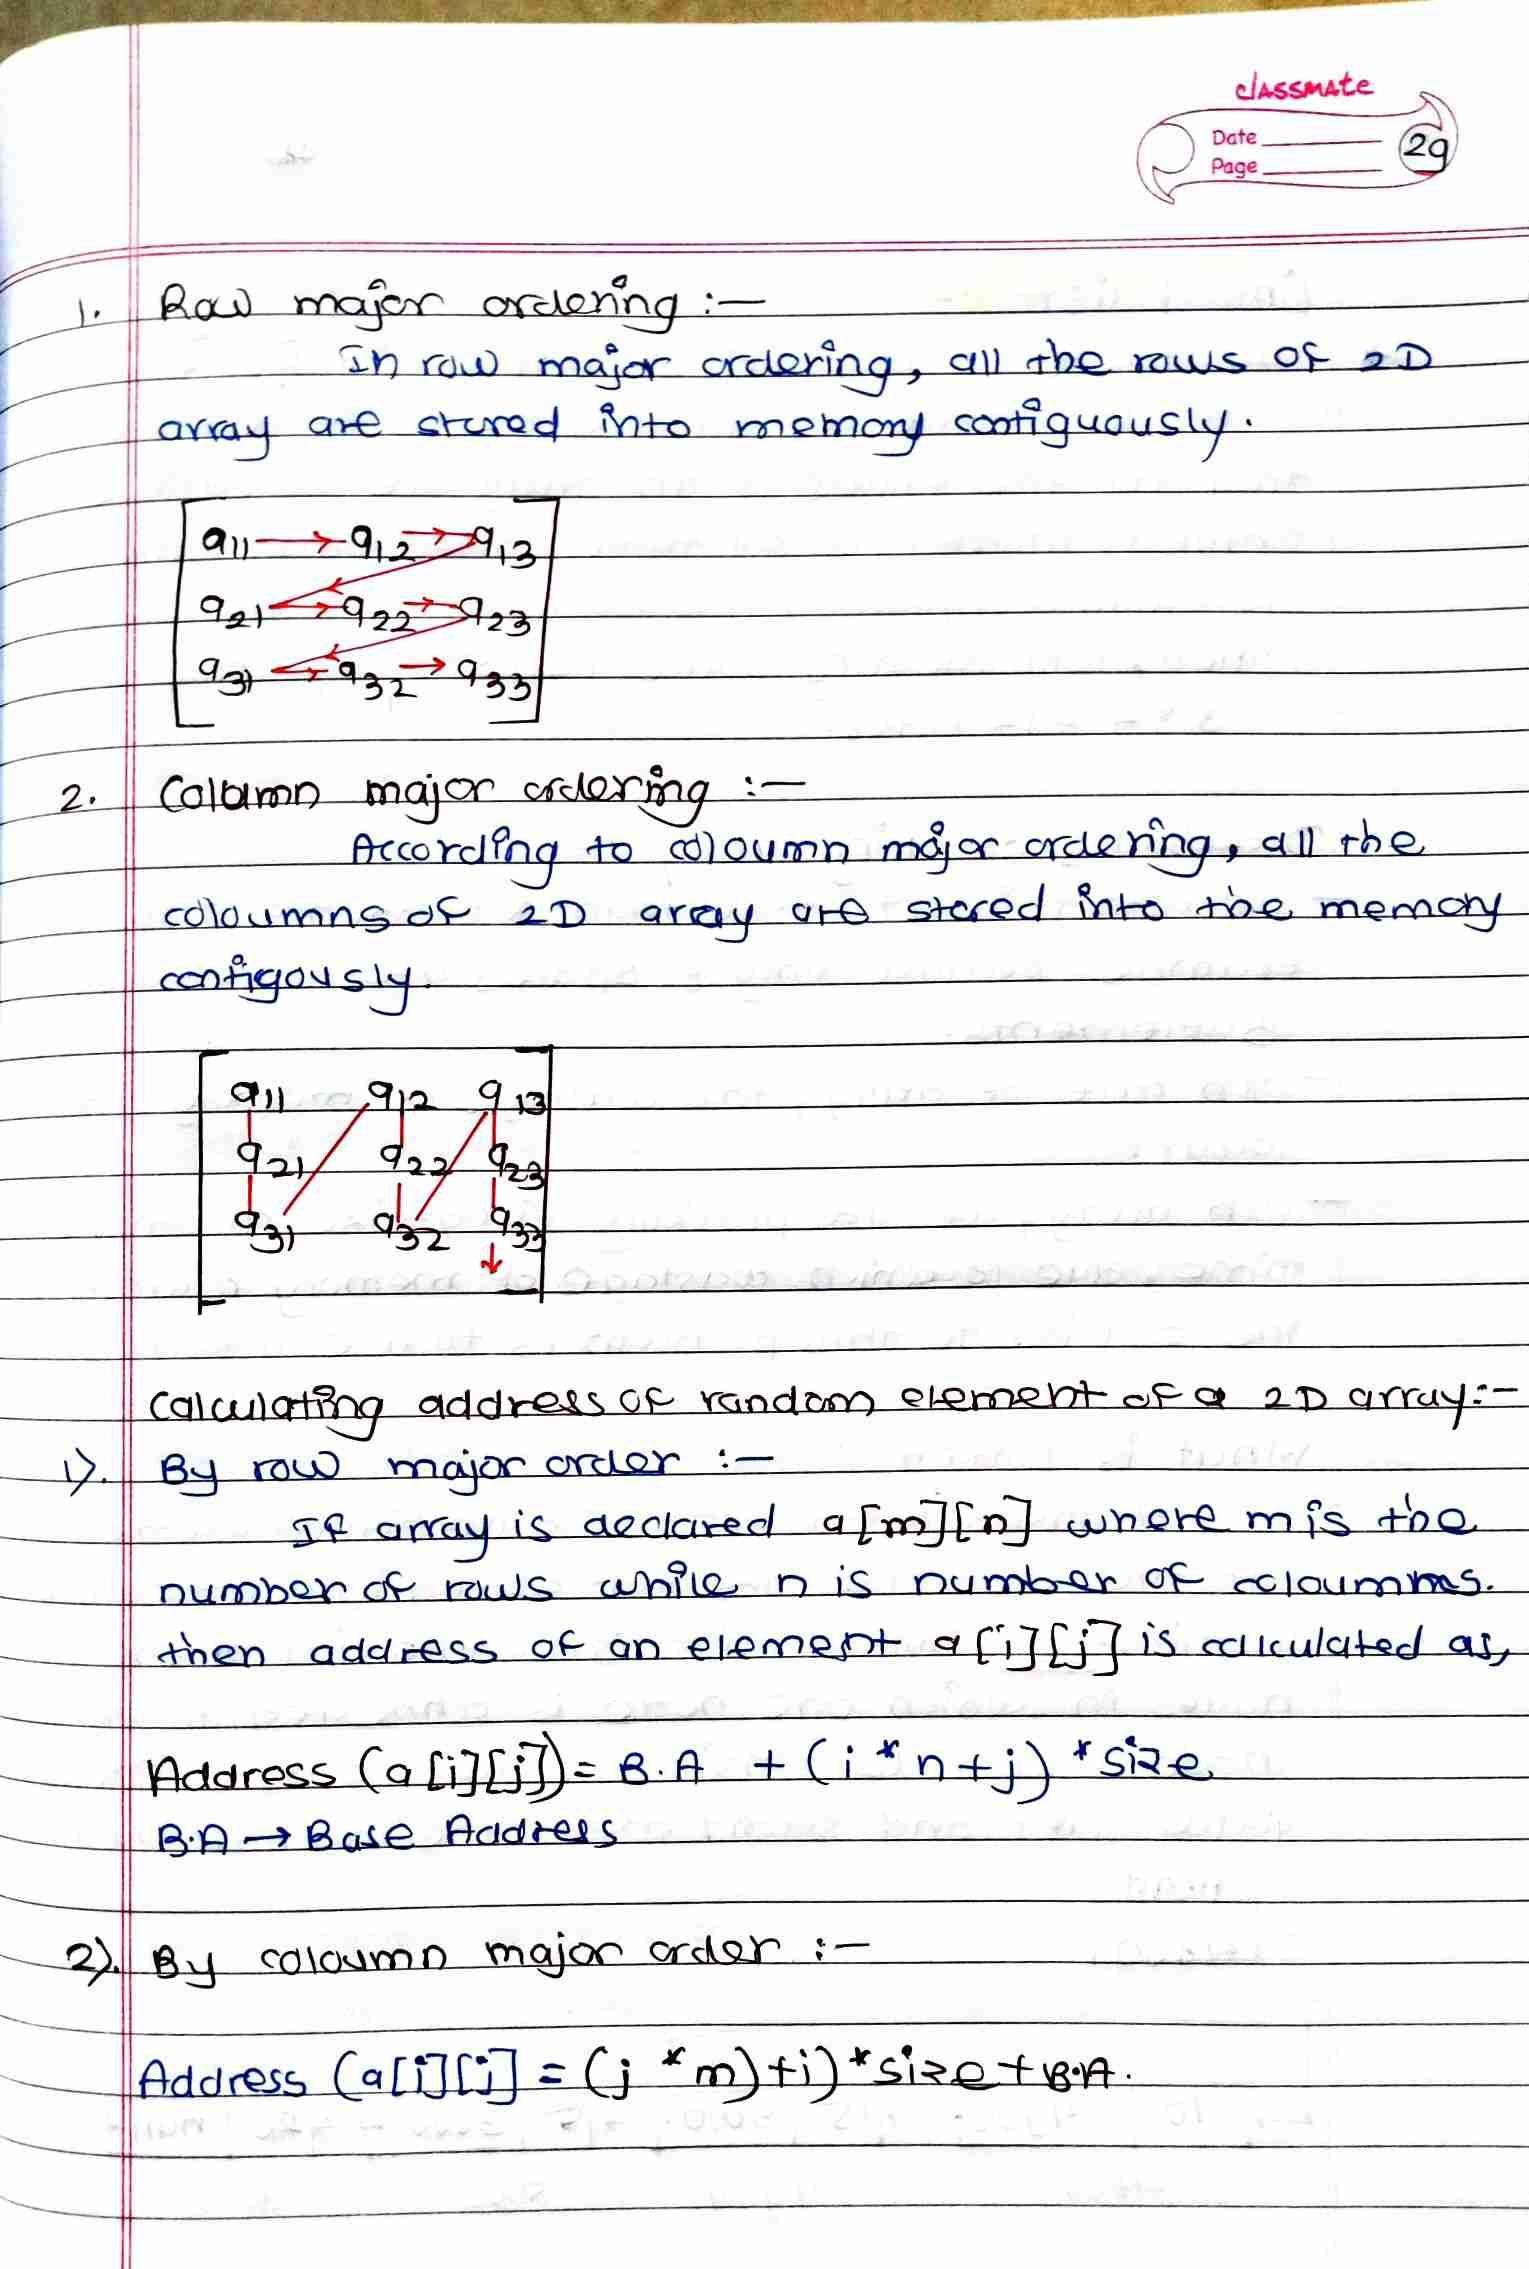 classmate
Date
Page
29
1. Row major ordering :—
In row major ordering, all the rows of 2D
array are stored into memory contiguously.
a11 → a12 → a13
a21 → a22 → a23
a31 → a32 → a33
2. Column major ordering :—
According to coloumn major ordering, all the
coloumns of 2D array are stored into the memory
contigously.
a11 a12 a13
a21 a22 a23
a31 a32 a33
Calculating address of random element of a 2D array:-
1). By row major order :—
If array is declared a[m][n] where m is the
number of rows while n is number of coloumns.
then address of an element a[i][j] is calculated as,
Address (a[i][j]) = B.A + (i * n + j) * size
B.A → Base Address
2). By coloumn major order :—
Address (a[i][j] = (j * m) + i) * size + B.A.